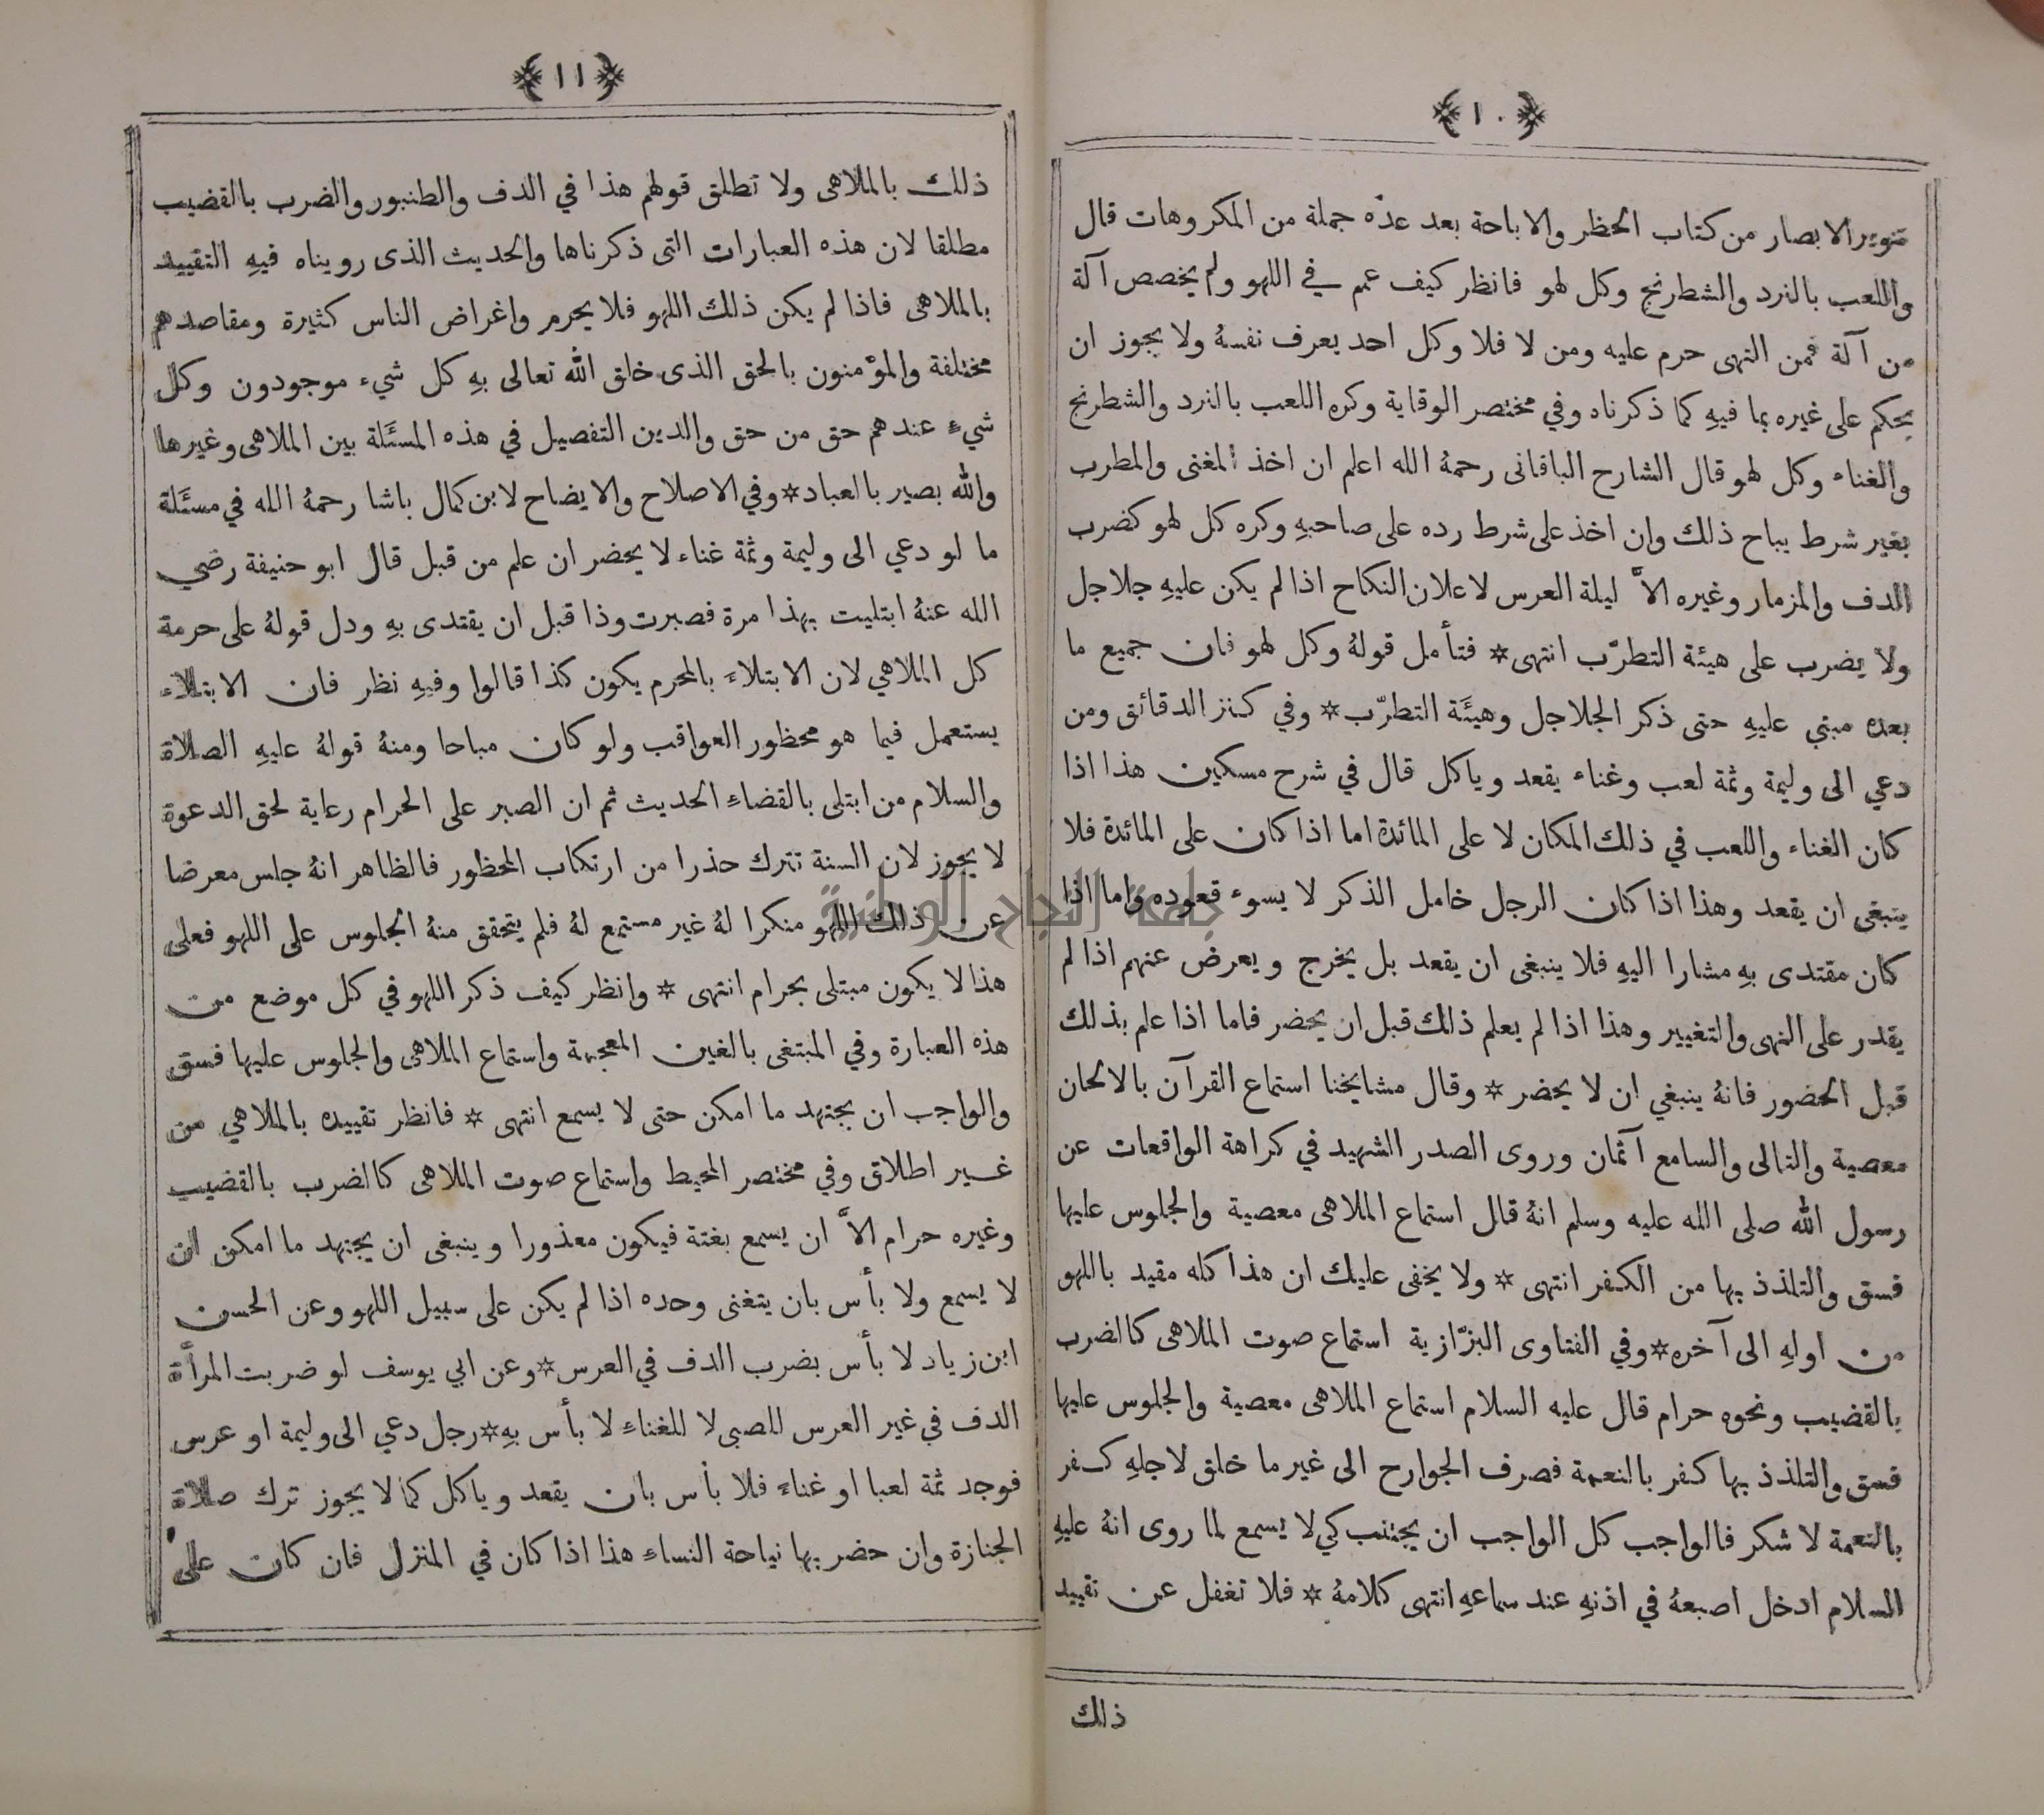 ﴿١٠﴾
تنوير الابصار من كتاب الحظر والاباحة بعد عدّه جملة من المكروهات قال
واللعب بالنرد والشطرنج وكل لهو فانظر كيف عمم في اللهو ولم يخصص آلة
من آلة فمن التهى حرم عليه ومن لا فلا وكل احد يعرف نفسهُ ولا يجوز ان
يحكم على غيره بما فيهِ كما ذكرناه وفي مختصر الوقاية وكره اللعب بالنرد والشطرنج
والغناء وكل لهو قال الشارح الباقانى رحمهُ الله اعلم ان اخذ المغنى والمطرب
بغير شرط يباح ذلك وان اخذ على شرط رده على صاحبهِ وكره كل لهو كضرب
الدف والمزمار وغيره الاَّ ليلة العرس لاعلان النكاح اذا لم يكن عليهِ جلاجل
ولا يضرب على هيئة التطرّب انتهى * فتأمل قولهُ وكل لهو فان جميع ما
بعده مبني عليهِ حتى ذكر الجلاجل وهيئَة التطرّب * وفي كنز الدقائق ومن
دعي الى وليمة وثمة لعب وغناء يقعد وياكل قال في شرح مسكين هذا اذا
كان الغناء واللعب في ذلك المكان لا على المائدة اما اذا كان على المائدة فلا
ينبغى ان يقعد وهذا اذا كان الرجل خامل الذكر لا يسوء قعوده واما اذا
كان مقتدى بهِ مشارا اليهِ فلا ينبغى ان يقعد بل يخرج ويعرض عنهم اذا لم
يقدر على النهى والتغيير وهذا اذا لم يعلم ذلك قبل ان يحضر فاما اذا علم بذلك
قبل الحضور فانهُ ينبغي ان لا يحضر * وقال مشايخنا استماع القرآن بالالحان
معصية والتالى والسامع آثمان وروى الصدر الشهيد في كراهة الواقعات عن
رسول الله صلى الله عليه وسلم انهُ قال استماع الملاهى معصية والجلوس عليها
فسق والتلذذ بها من الكفر انتهى * ولا يخفى عليك ان هذا كله مقيد باللهو
من اولهِ الى آخره * وفي الفتاوى البزّازية استماع صوت الملاهى كالضرب
بالقضيب ونحوه حرام قال عليه السلام استماع الملاهى معصية والجلوس عليها
فسق والتلذذ بها كفر بالنعمة فصرف الجوارح الى غير ما خلق لاجلهِ كفر
بالنعمة لا شكر فالواجب كل الواجب ان يجتنب كي لا يسمع لما روى انهُ عليهِ
السلام ادخل اصبعهُ في اذنهِ عند سماعهِ انتهى كلامهُ * فلا تغفل عن تقييد
ذلك
﴿١١﴾
ذلك بالملاهى ولا تطلق قولهم هذا في الدف والطنبور والضرب بالقضيب
مطلقا لان هذه العبارات التى ذكرناها والحديث الذى رويناه فيهِ التقييد
بالملاهى فاذا لم يكن ذلك اللهو فلا يحرم واغراض الناس كثيرة ومقاصدهم
مختلفة والمؤمنون بالحق الذى خلق الله تعالى بهِ كل شيء موجودون وكل
شيءٍ عندهم حق من حق والدين التفصيل في هذه المسئَلة بين الملاهى وغيرها
والله بصير بالعباد * وفي الاصلاح والايضاح لابن كمال باشا رحمهُ الله في مسئَلة
ما لو دعي الى وليمة وثمة غناء لا يحضر ان علم من قبل قال ابو حنيفة رضي
الله عنهُ ابتليت بهذا مرة فصبرت وذا قبل ان يقتدى بهِ ودل قولهُ على حرمة
كل الملاهي لان الابتلاءَ بالمحرم يكون كذا قالوا وفيهِ نظر فان الابتلاء
يستعمل فيما هو محظور العواقب ولو كان مباحا ومنهُ قولهُ عليهِ الصلاة
والسلام من ابتلى بالقضاءِ الحديث ثم ان الصبر على الحرام رعاية لحق الدعوة
لا يجوز لان السنة تترك حذرا من ارتكاب المحظور فالظاهر انهُ جلس معرضا
عن ذلك اللهو منكرا لهُ غير مستمع لهُ فلم يتحقق منهُ الجلوس على اللهو فعلى
هذا لا يكون مبتلى بحرام انتهى * وانظر كيف ذكر اللهو في كل موضع من
هذه العبارة وفي المبتغى بالغين المعجمة واستماع الملاهى والجلوس عليها فسق
والواجب ان يجتهد ما امكن حتى لا يسمع انتهى * فانظر تقييده بالملاهي من
غير اطلاق وفي مختصر المحيط واستماع صوت الملاهى كالضرب بالقضيب
وغيره حرام الاَّ ان يسمع بغتة فيكون معذورا وينبغى ان يجتهد ما امكن ان
لا يسمع ولا بأس بان يتغنى وحده اذا لم يكن على سبيل اللهو وعن الحسن
ابن زياد لا بأس بضرب الدف في العرس * وعن ابي يوسف لو ضربت المرأة
الدف في غير العرس للصبى لا للغناءِ لا بأس بهِ * رجل دعي الى وليمة او عرس
فوجد ثمة لعبا او غناءً فلا بأس بان يقعد وياكل كما لا يجوز ترك صلاة
الجنازة وان حضر بها نياحة النساءِ هذا اذا كان في المنزل فان كان على
جامعة النجاح الوطنية